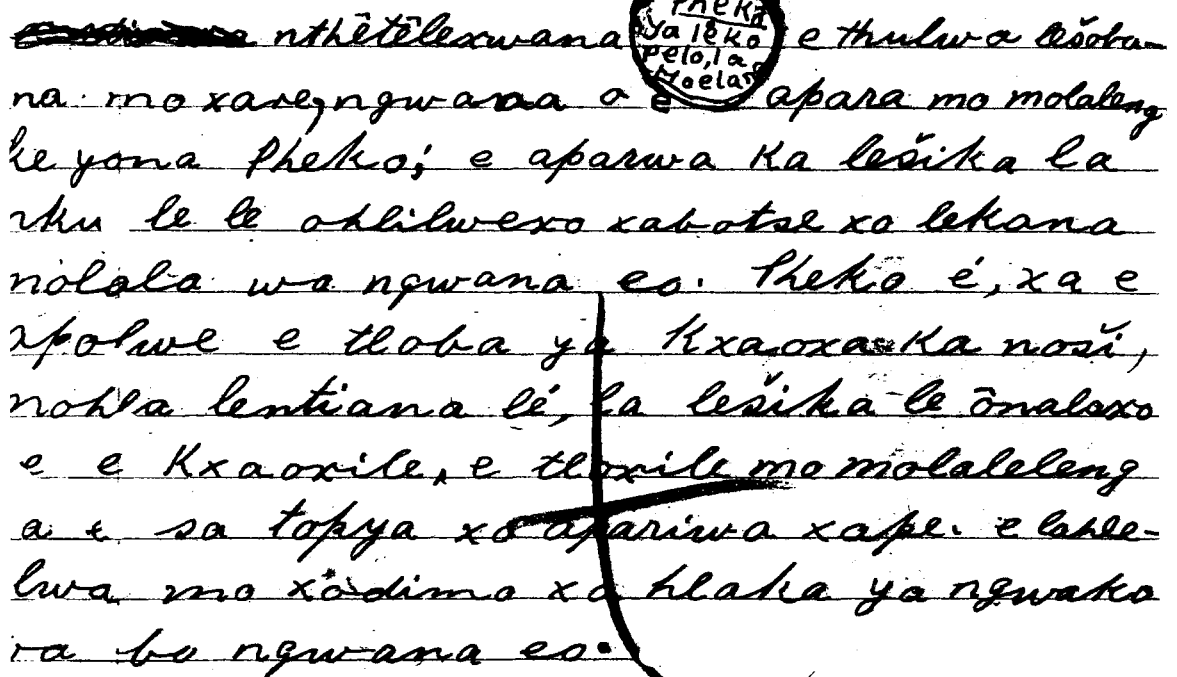 nthêtêlexwana e thulwa lešoba-
na mo xare, ngwana o e apara mo molaleng
ke yona Pheko; e aparwa ka lešika la
nku le le ohlilwexo xabotse xo lekana
molala wa ngwana eo. Pheko é, xa e
apolwe e tloba ya kxaoxa ka noši,
mohla lentiana lé, la lešika le ônaloxo
e e kxaoxile, e tloxile mo molaleleng
a e sa topya xo apariwa xape. e lahle-
lwa mo xodimo xo hlaka ya ngwako
ra bo ngwana eo.
Pheko
ya leko
pelo, la
Moelan